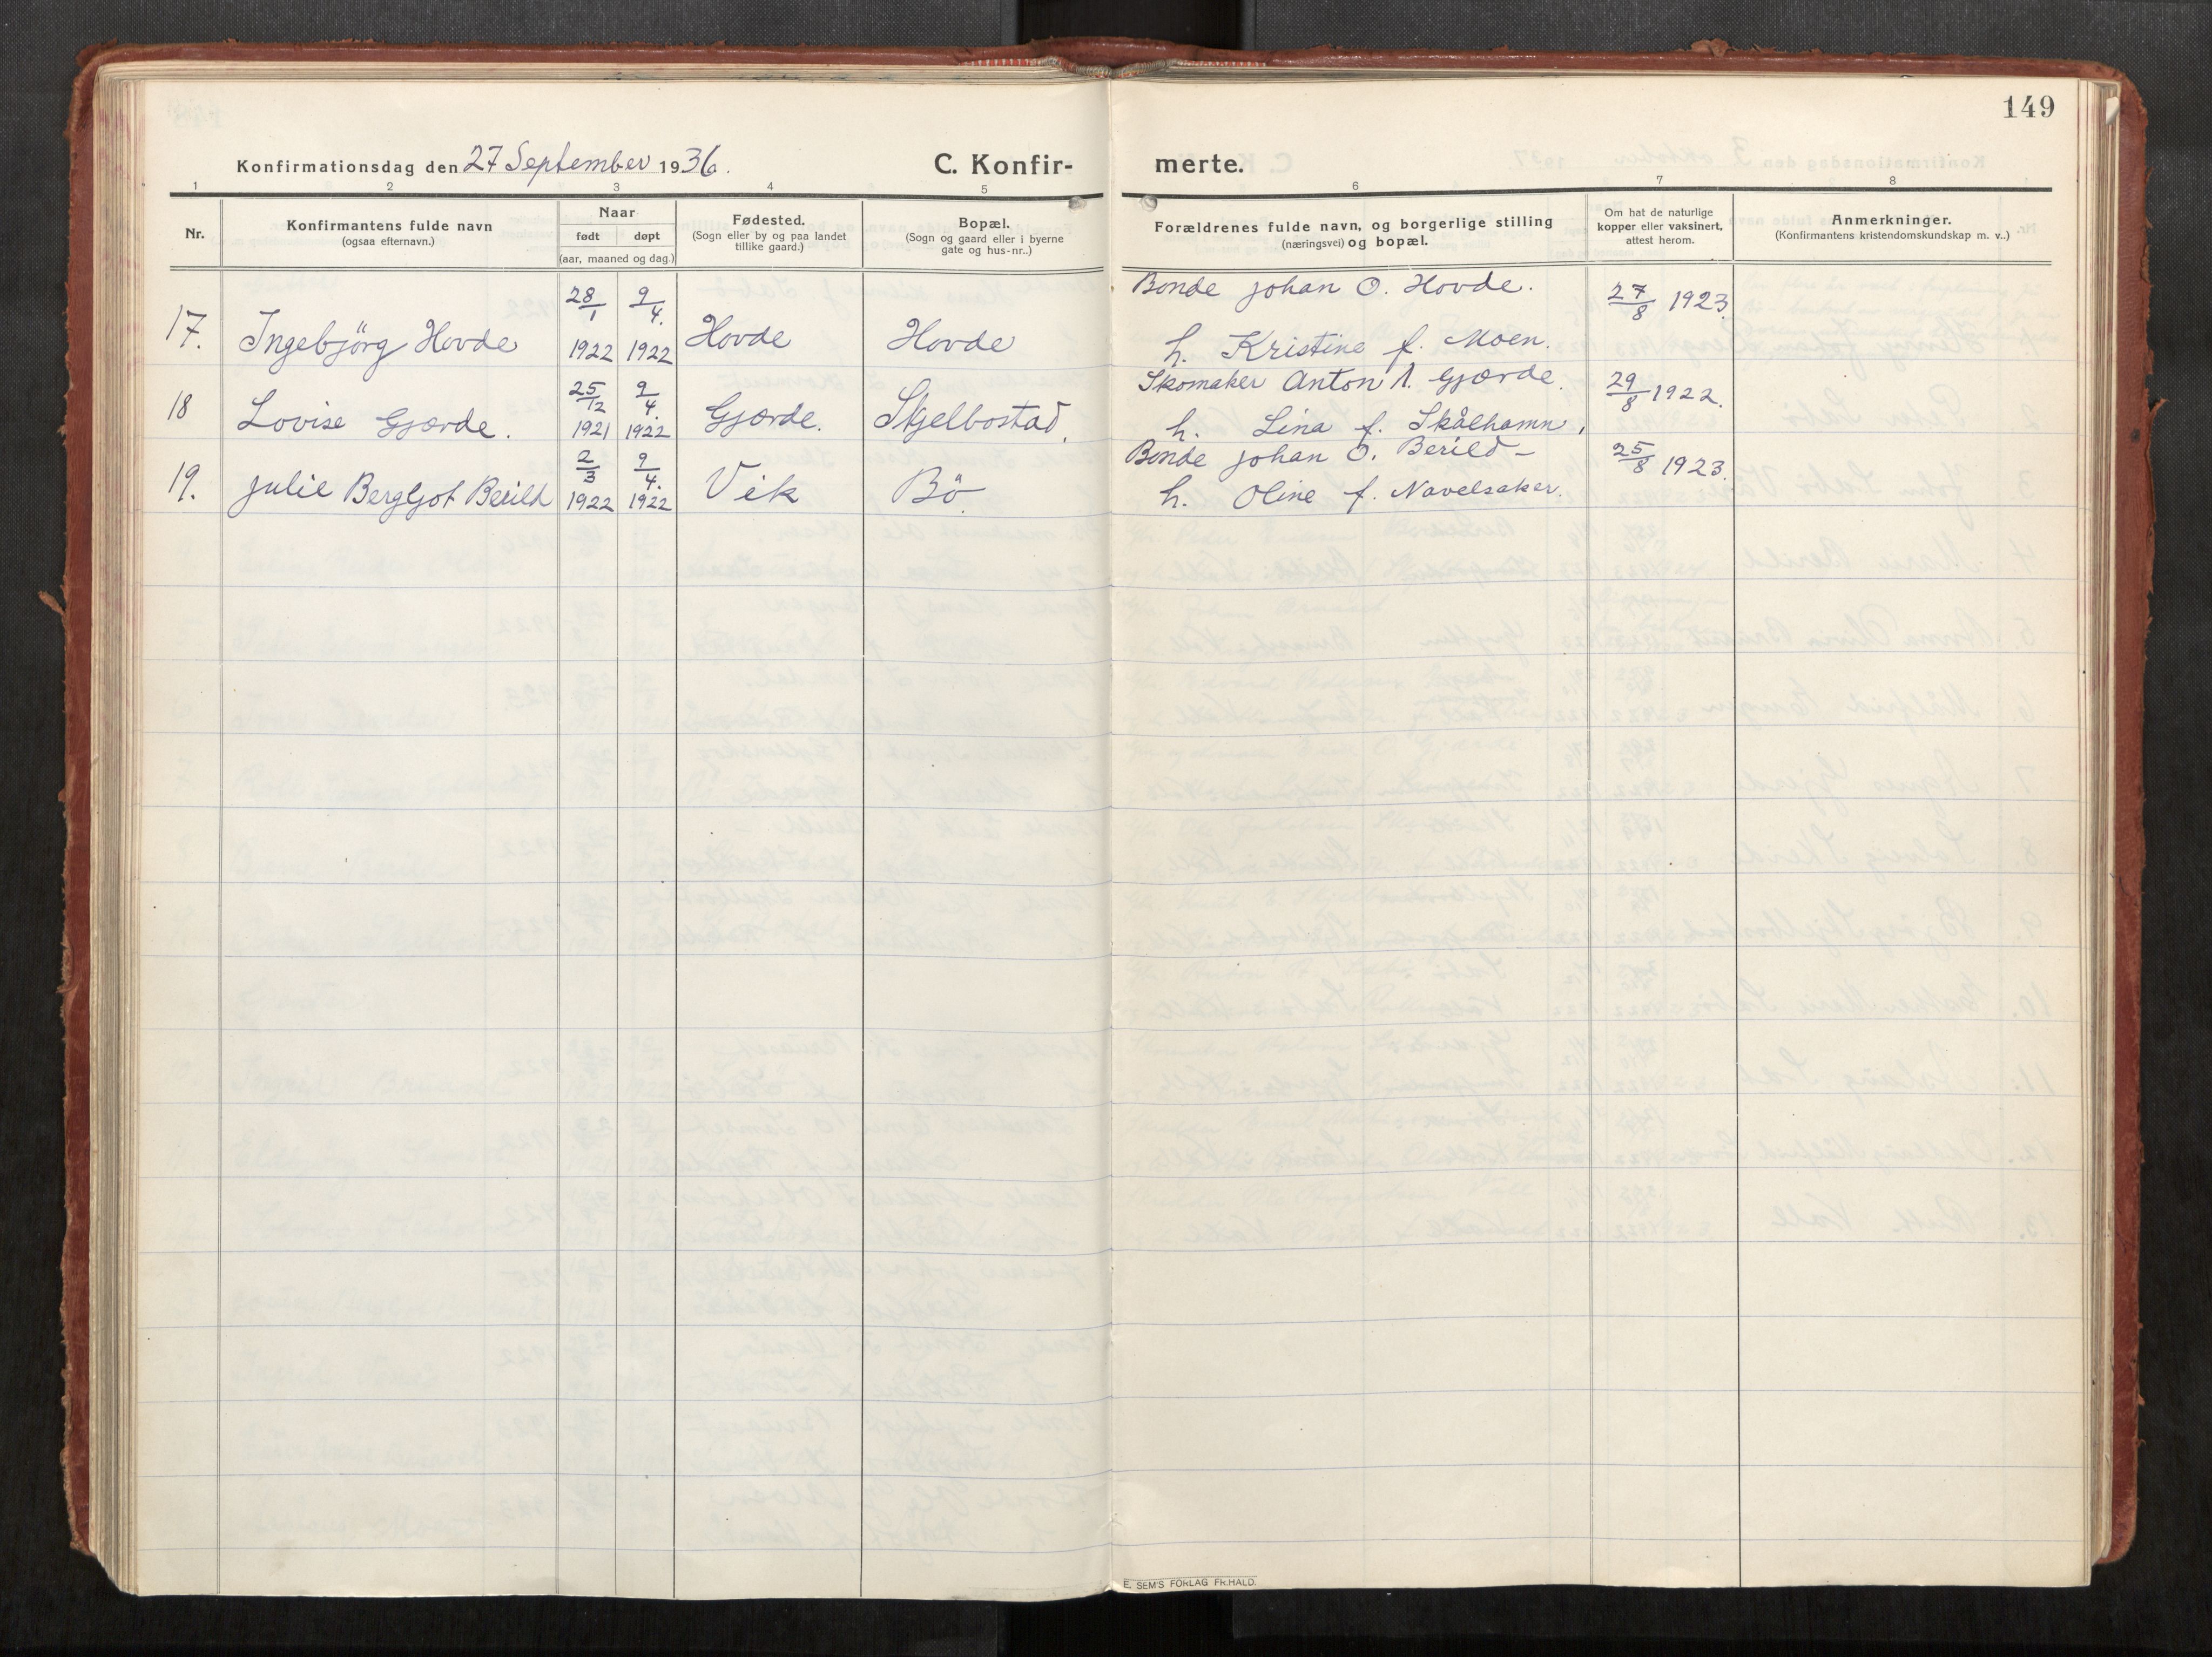 149
Konfirmationsdag den 27 September 1936.
C. Konfir-
merte.
1 2 3 4 5 6 7 8
Nr.
Konfirmantens fulde navn
(ogsaa efternavn.)
Naar
født døpt
(aar, maaned og dag.)
Fødested.
(Sogn eller by og paa landet
tillike gaard.)
Bopæl.
(Sogn og gaard eller i byerne
gate og hus-nr..)
Forældrenes fulde navn, og borgerlige stilling
(næringsvei) og bopæl.
Om hat de naturlige
kopper eller vaksinert,
attest herom.
Anmerkninger.
(Konfirmantens kristendomskundskap m. v..)
28/1 9/4. Bonde Johan O. Hovde. 27/8 1923.
17. Ingebjörg Hovde 1922 1922 Hovde Hovde h. Kristine f. Moen.
25/12 9/4. Skomaker Anton A. Gjærde. 29/8 1922.
18 Lovise Gjærde. 1921 1922 Gjærde. Skjelbostad. h. Lina f. Skålhamn,
2/3 9/4. Bonde Johan O. Berild - 25/8 1923.
19. Julie Bergljot Berild 1922 1922 Vik Bö h. Oline f. Navelsaker.
E. SEM'S FORLAG FR.HALD.